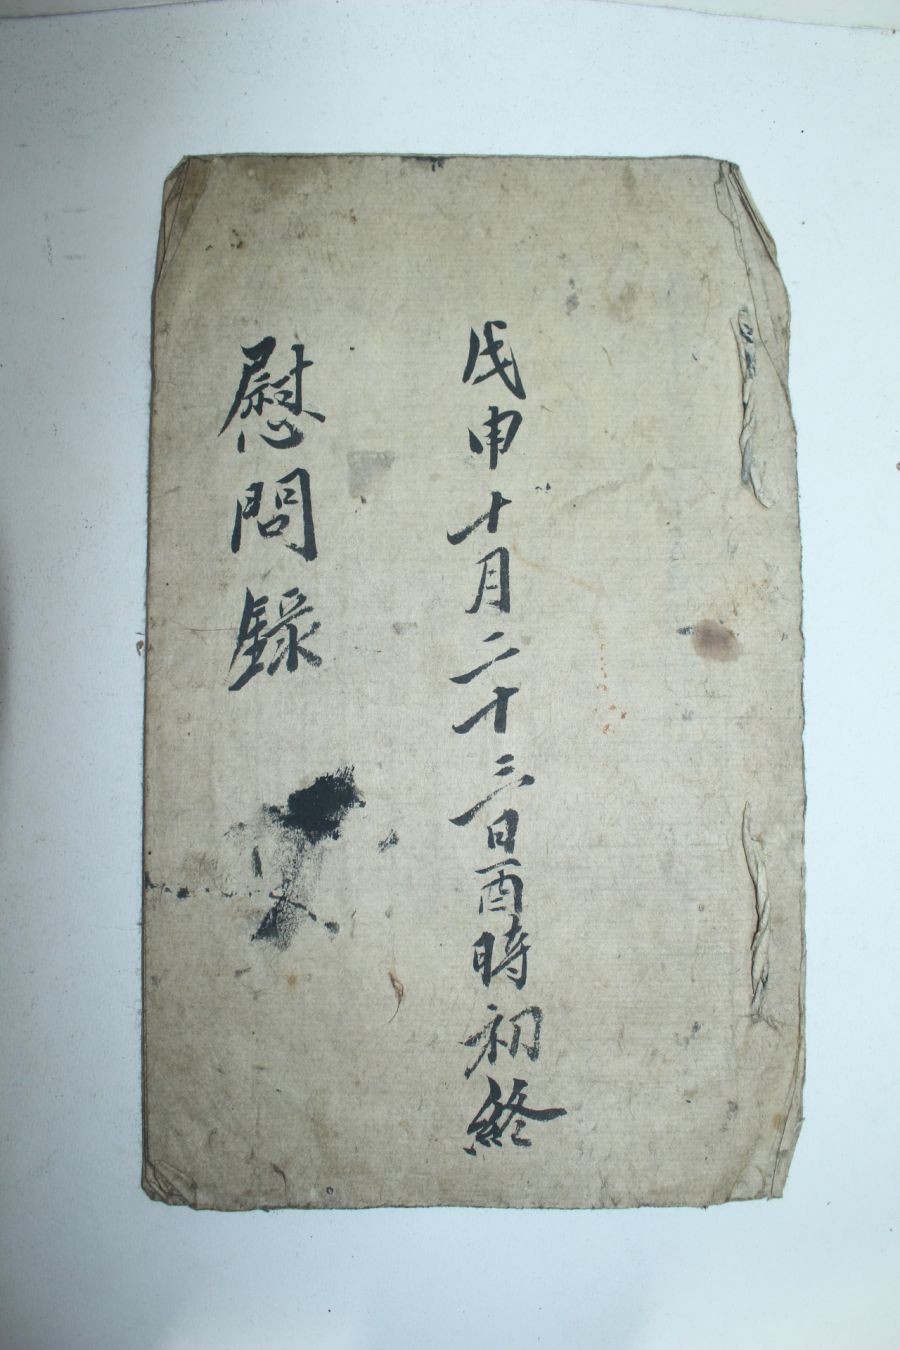 戊申十月二十三日酉時初終
慰問錄